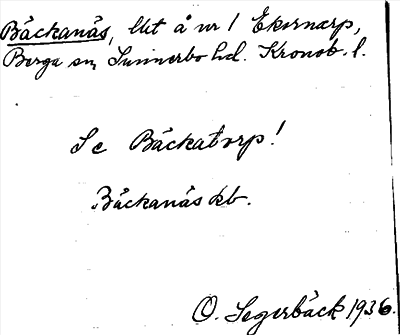 Bäckanäs, lht å nr 1 Ekornarp,
Berga sn, Sunnerbo hd. Kronob. l.
Se Bäckatorp!
Bäckanäs kb.
O. Segerbäck 1936.